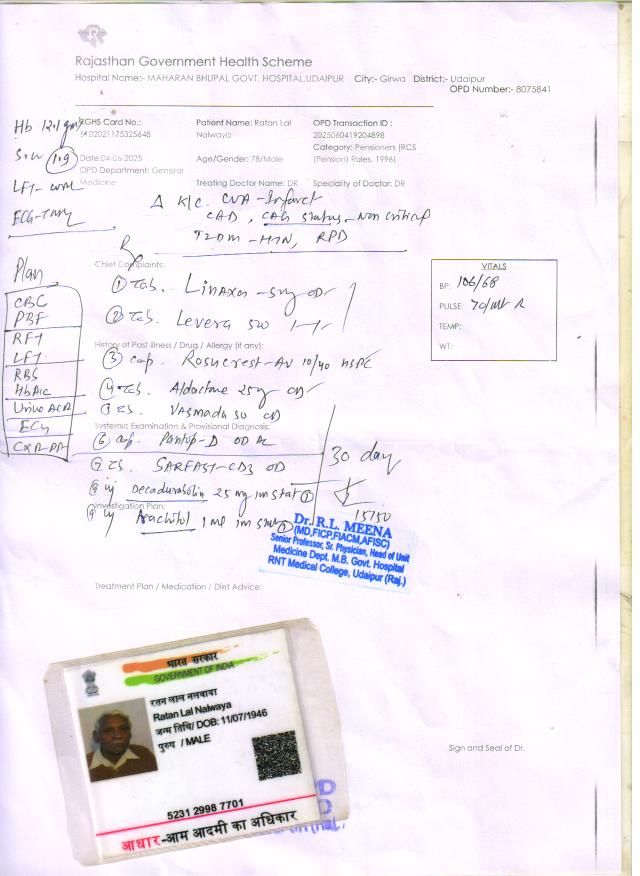 Rajasthan Government Health Scheme
Hospital Name:- MAHARAN BHUPAL GOVT. HOSPITAL,UDAIPUR City:- Girwa District:- Udaipur
OPD Number:- 8075841
RGHS Card No.: Patient Name: Ratan Lal OPD Transaction ID :
202021175325648 Nalwaya 2025060419204898
Category: Pensioners (RCS
Date:04-06-2025 Age/Gender: 78/Male (Pension) Rules, 1996)
OPD Department: General
Medicine Treating Doctor Name: DR Speciality of Doctor: DR
Hb 12.1 gm
1.9
LFT-
ECG-
Δ K/C CVA-Infarct
CAD, CAG status-Non critical
T2DM-HTN, RPD
Rx
Chief Complaints:
① Tab. Linaxa-5mg OD
② Tab. Levera 500 1-1
History of Past Illness / Drug / Allergy (if any):
③ Cap. Rosucrest-AV 10/40
④ Tab. Aldactone 25mg OD
Vasmada 50 OD
Systemic Examination & Provisional Diagnosis:
⑥ Cap. Pantop-D OD AC
SARFAST-CD3 OD
inj Decadurabolin 25 mg im stat ①
Investigation Plan:
inj Arachitol 1 ml im stat ①
30 day
Plan
CBC
PBF
RFT
LFT
RBS
HbA1c
Urine ACR
ECG
CXR-PA
VITALS
BP: 106/68
PULSE: 70/mt R
TEMP:
WT:
15150
Dr. R.L. MEENA
(MD,FICP,FIACM,AFISC)
Senior Professor, Sr. Physician, Head of Unit
Medicine Dept. M.B. Govt. Hospital
RNT Medical College, Udaipur (Raj.)
Treatment Plan / Medication / Diet Advice:
Sign and Seal of Dr.
भारत सरकार
GOVERNMENT OF INDIA
रतन लाल नलवाया
Ratan Lal Nalwaya
जन्म तिथि/ DOB: 11/07/1946
पुरुष / MALE
5231 2998 7701
आधार-आम आदमी का अधिकार